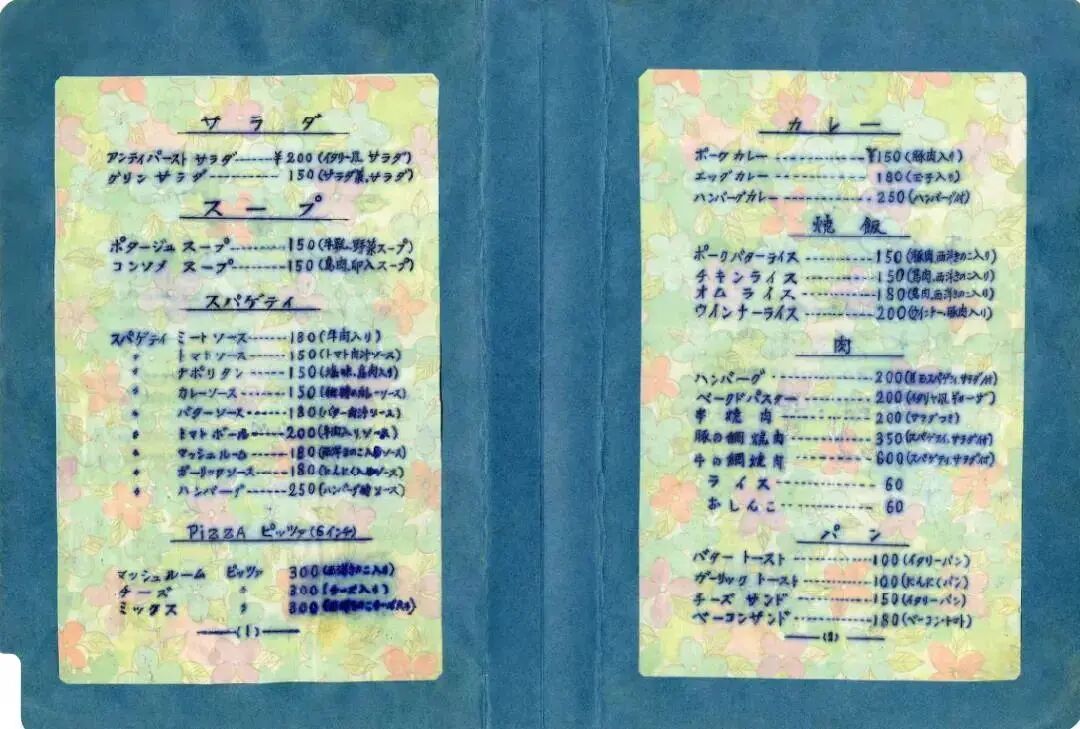 サラダ
アンティパースト サラダ------¥200(イタリー風サラダ)
グリン サラダ--------150(サラダ菜、サラダ)
スープ
ポタージュ スープ-------150(牛乳、野菜スープ)
コンソメ スープ-------150(鳥肉、卵入スープ)
スパゲティ
スパゲティ ミートソース-----180(牛肉入り)
〃 トマトソース-----150(トマト肉汁ソース)
〃 ナポリタン-----150(塩味、鳥肉入り)
〃 カレーソース-----150
〃 バターソース-----180(バター肉汁ソース)
〃 トマトボール-----200
〃 マッシュルーム-----180(西洋きのこ入りソース)
〃 ガーリックソース-----180(にんにく入りソース)
〃 ハンバーグ-----250
PiZZA ピッツァ(6インチ)
マッシュルーム ピッツァ 300(西洋きのこ入り)
チーズ 〃 300(チーズ入り)
ミックス 〃 300
(1)
カレー
ポークカレー------------¥150(豚肉入り)
エッグカレー------------180(玉子入り)
ハンバーグカレー----------250(ハンバーグ付)
焼飯
ポークバターライス--------150(豚肉、西洋きのこ入り)
チキンライス----------150(鳥肉、西洋きのこ入り)
オムライス----------180(鳥肉、西洋きのこ入り)
ウインナーライス--------200(ウインナー、豚肉入り)
肉
ハンバーグ------------200
ベークドパスター--------200(イタリヤ風ギョーザ)
串焼肉------------200(サラダつき)
豚の網焼肉----------350(スパゲティ、サラダ付)
牛の網焼肉----------600(スパゲティ、サラダ付)
ライス---------60
おしんこ---------60
パン
バタートースト---------100(イタリーパン)
ガーリックトースト-------100(にんにくパン)
チーズサンド---------150(イタリーパン)
ベーコンサンド---------180(ベーコン、トマト)
(2)